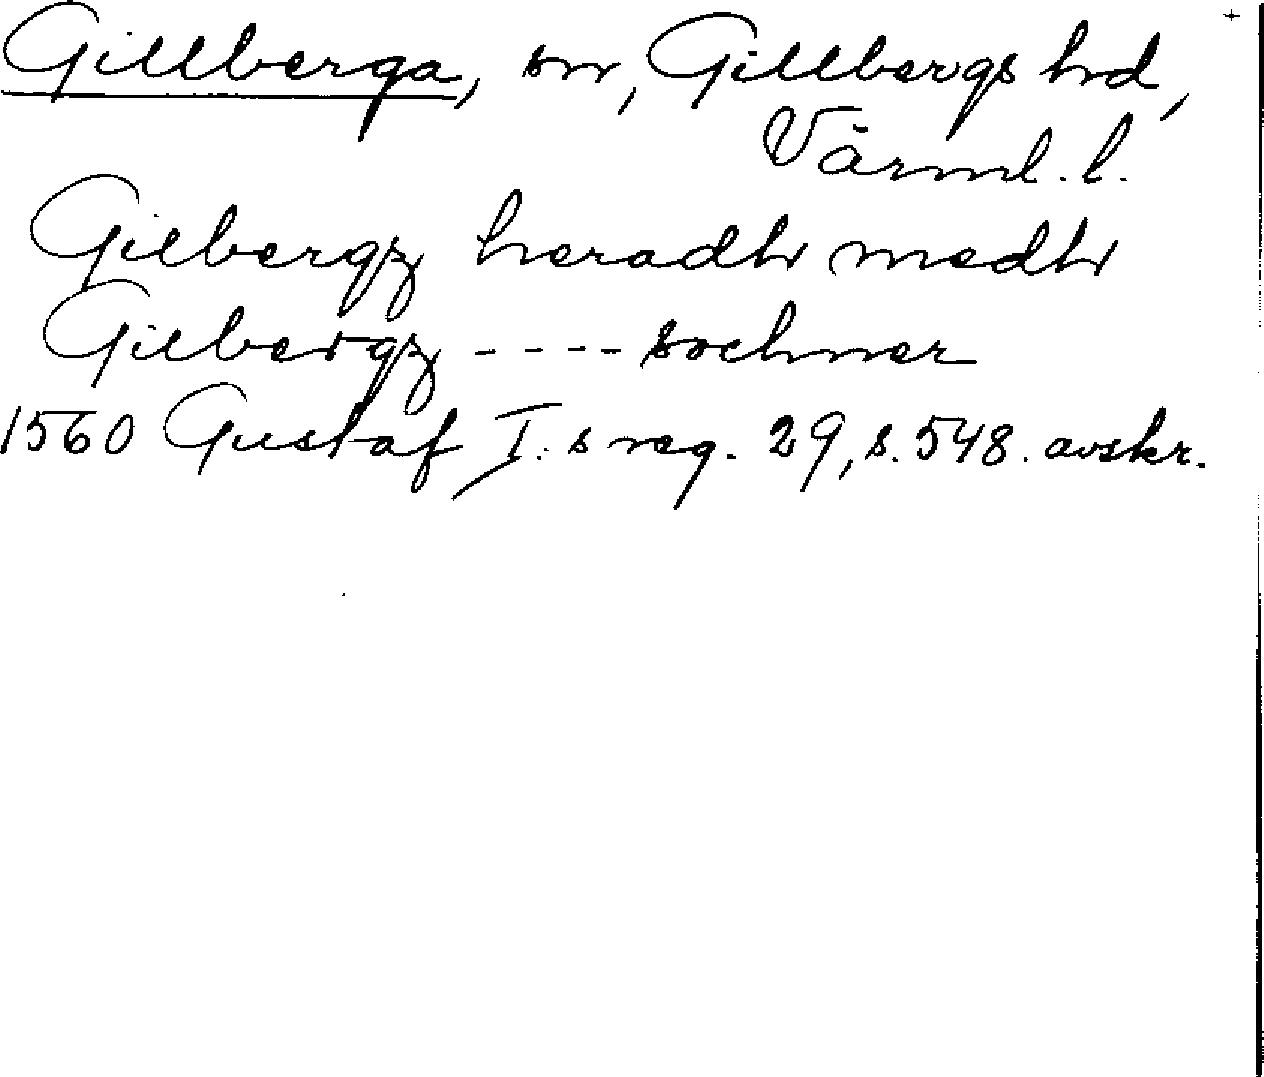 Gillberga, sn, Gillbergs hd,
Värml. l.
Gilbergz heradh medh
Gilbergz ---- sochner
1560 Gustaf I:s reg. 29, s. 548. avskr.